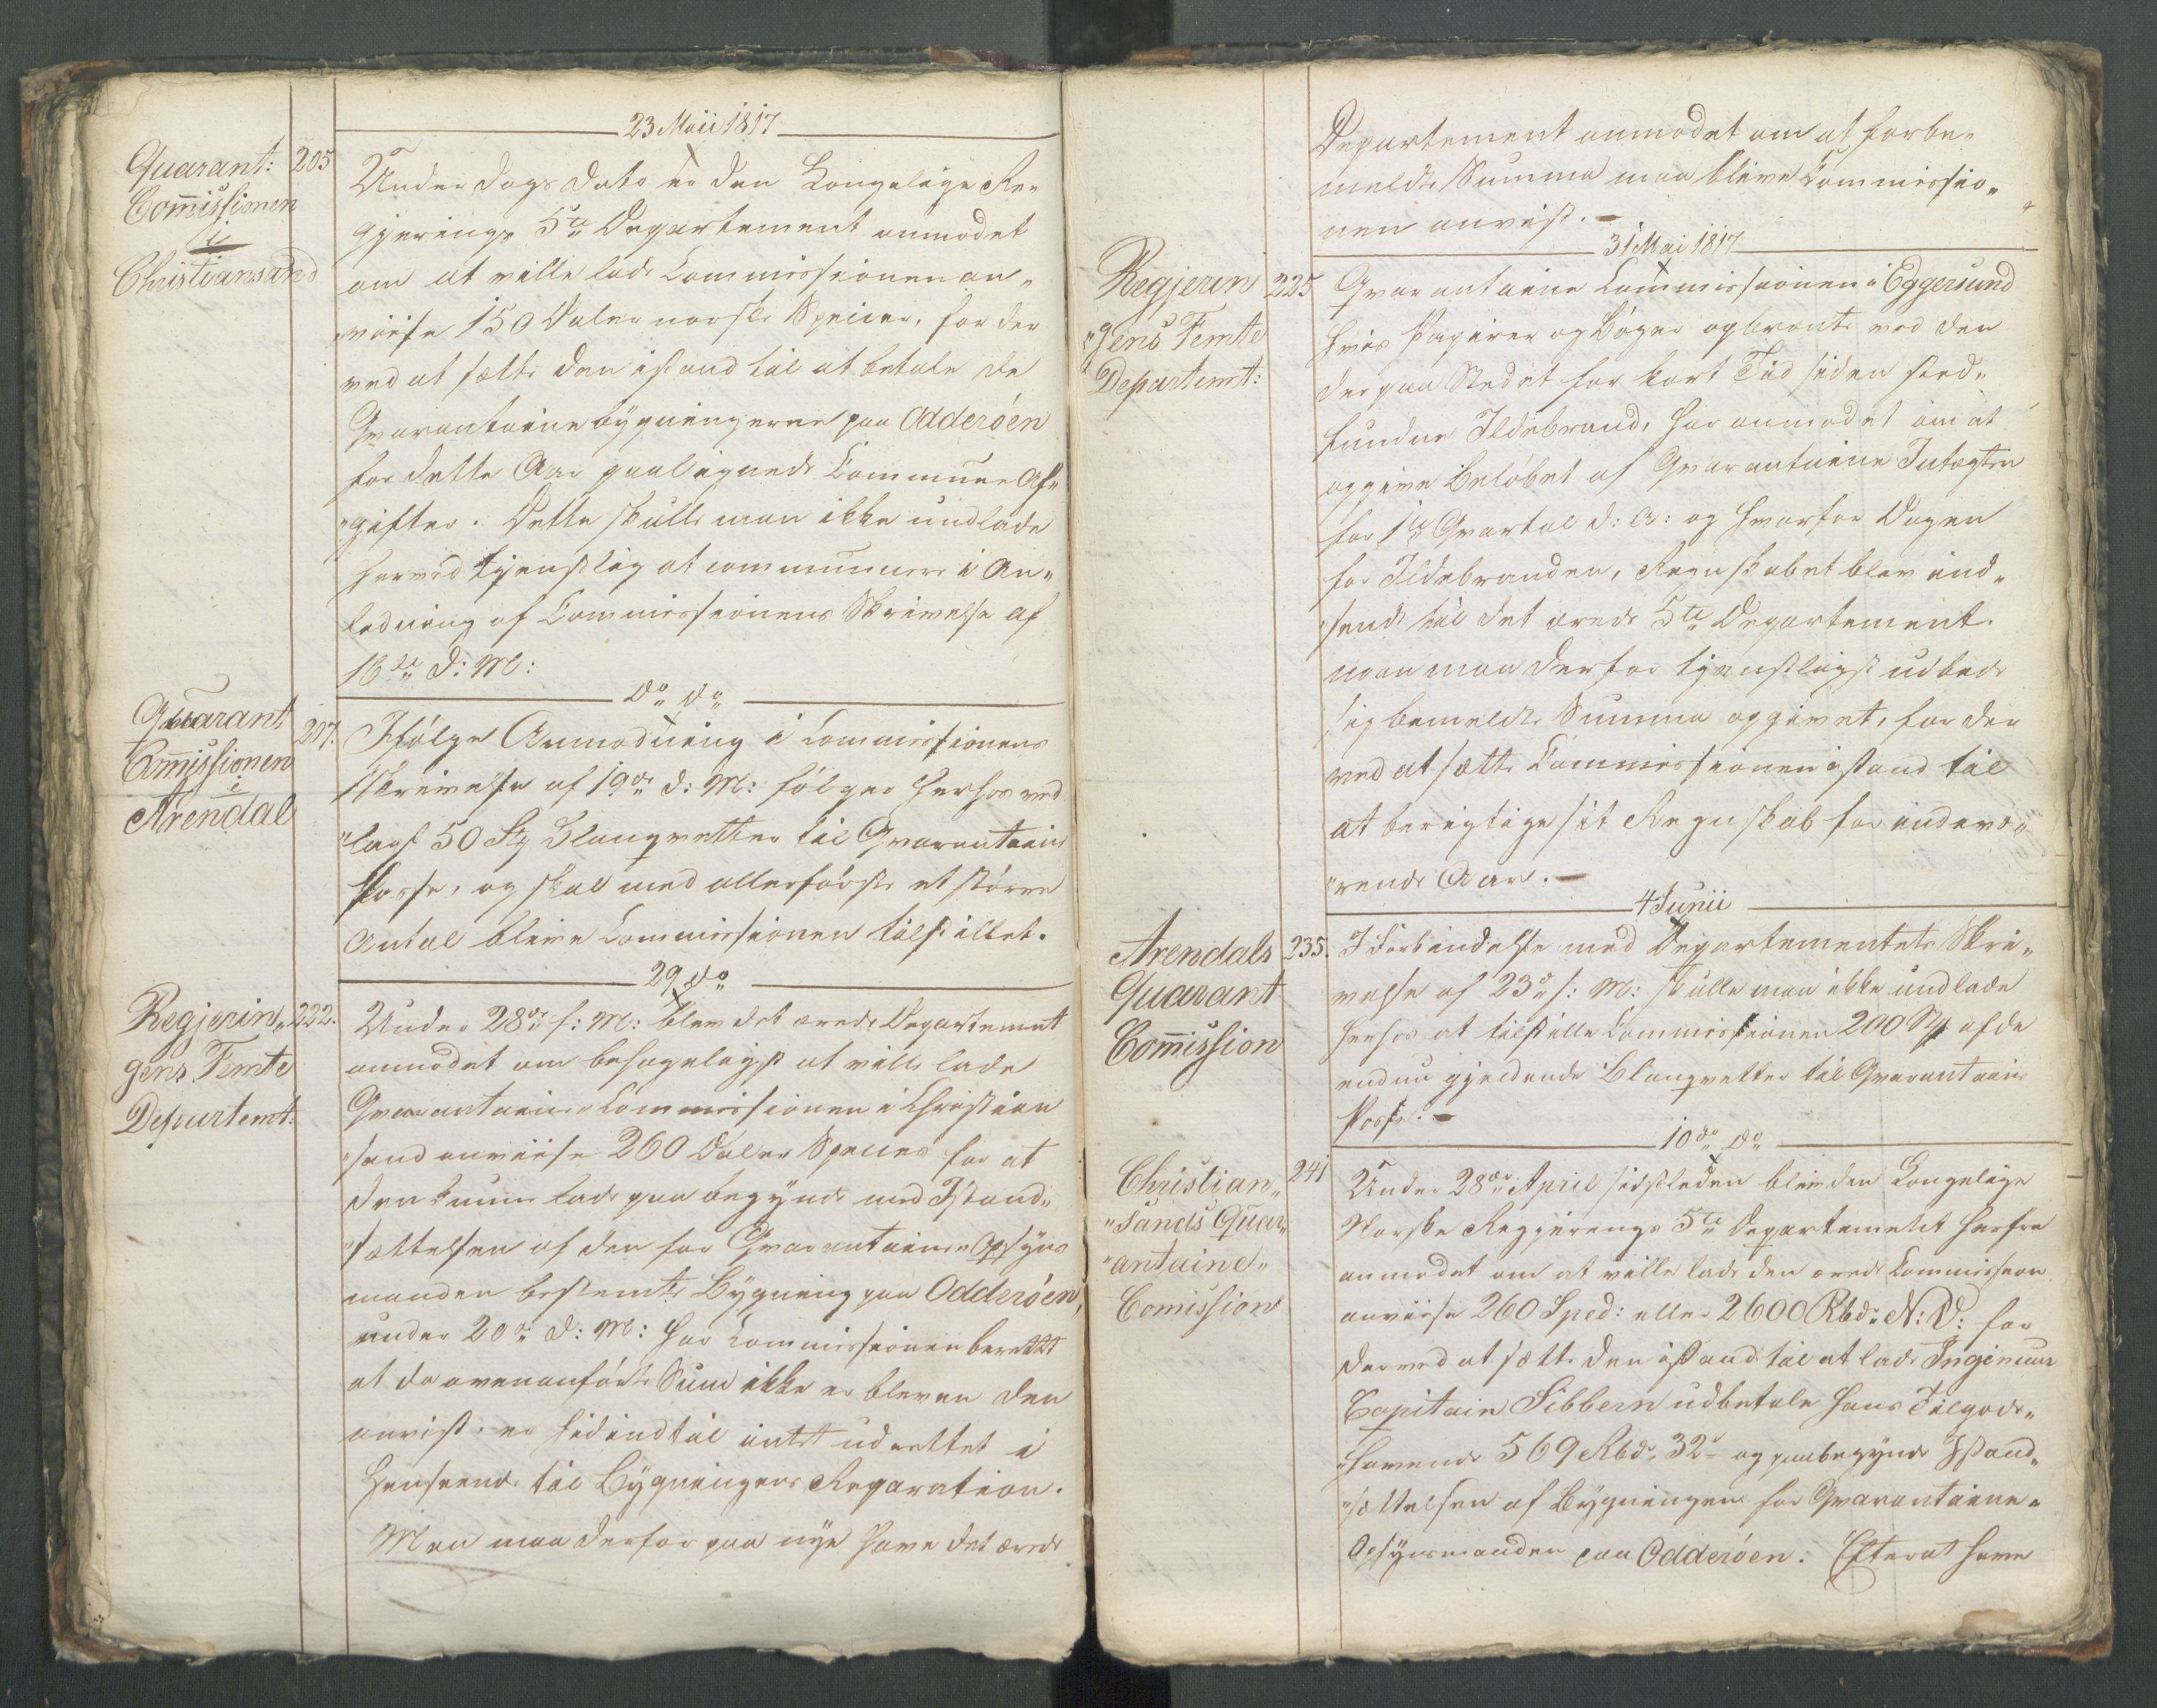 23 Maii 1817
Quarant:
Com̄issionen
i
Christiansand
205
Under Dags Dato er den Kongelige Re„
gjerings 5te Departement anmodet
om at ville lade Commissionen an„
„viise 150 Daler norske Specier, for der
ved at sætte den istand til at betale de
Qvarantainebygningerne paa Odderöen
for dette Aar paalignede Commune Af„
„gifter. Dette skulle man ikke undlade
herved tjenstlig at communicere i An„
ledning af Commissionens Skrivelse af
16de d: M:
Do Do
Quarant
Com̄issionen
i
Arendal
207.
Ifölge Anmodning i Commissionens
Skrivelse af 19de d: M: fölger herhos ved
„lagt 50 Stk Blanqvetter til Qvarantaine
Passe, og skal med allerförste et större
Antal blive Commissionen tilstillet.
29 Do
Regjerin„
gens Femte
Departemt:
222.
Under 28de f: M: blev det ærede Departement
anmodet om behageligst at ville lade
Qvarantaine Commissionen i Christian
„sand anviise 260 Daler Species for at
den kunne lade paa begynde med Istand„
„sættelsen af den for Qvarantaine Opsyns
manden bestemte Bygning paa Odderöen,
under 20de d: M: har Commissionen berettet
at da ovenanförte Sum ikke er bleven den
anvist, er hidindtil intet udrettet i
Henseende til Bygningens Reparation.
Man maa derfor paa nye have det ærede
Departement anmodet om at forbe„
meldte Summa maa blive Commissio„
nen anvist.
31 Mai 1817
Regjerin
„gens Femte
Departemt:
225
Qvarantaine Commissionen i Eggersund
hvis Papirer og Böger opbrændte ved den
der paa Stedet for kort Tid siden sted„
fundne Ildebrand, har anmodet om at
opgive Belöbet af Qvarantaine Intægten
for 1te Qvartal d: A: og hvorfor Dagen
for Ildebranden, Regnskabet blev ind„
„sendt til det ærede 5te Departement.
man maa derfor tjenstligst udbede
sig bemeldte Summa opgivet, for der
ved at sætte Commissionen istand til
at berigtige sit Regnskab for indevæ„
„rende Aar.
4 Junii
Arendals
Quarant
Com̄ission
235.
I Forbindelse med Departementets Skri„
velse af 23de f: M: skulle man ikke undlade
herhos at tilstille Commissionen 200 Stk af de
endnu gjeldende Blanqvetter til Qvarantaine
Passe.
10de Do
Christian„
„sands Quar„
„antaine„
Comission
241
Under 28de April sidstleden blev den Kongelige
Norske Regjerings 5te Departement herfra
anmodet om at ville lade den ærede Commission
anviise 260 Sped: eller 2600 Rbdr N: V: for
derved at sætte den istand til at lade Ingenieur
Capitain Sibbern udbetale hans Tilgode„
„havende 569 Rbdr 32s og paabegynde Istand„
„sættelsen af Bygningen for Qvarantaine„
Opsynsmanden paa Odderöen. Efter at have